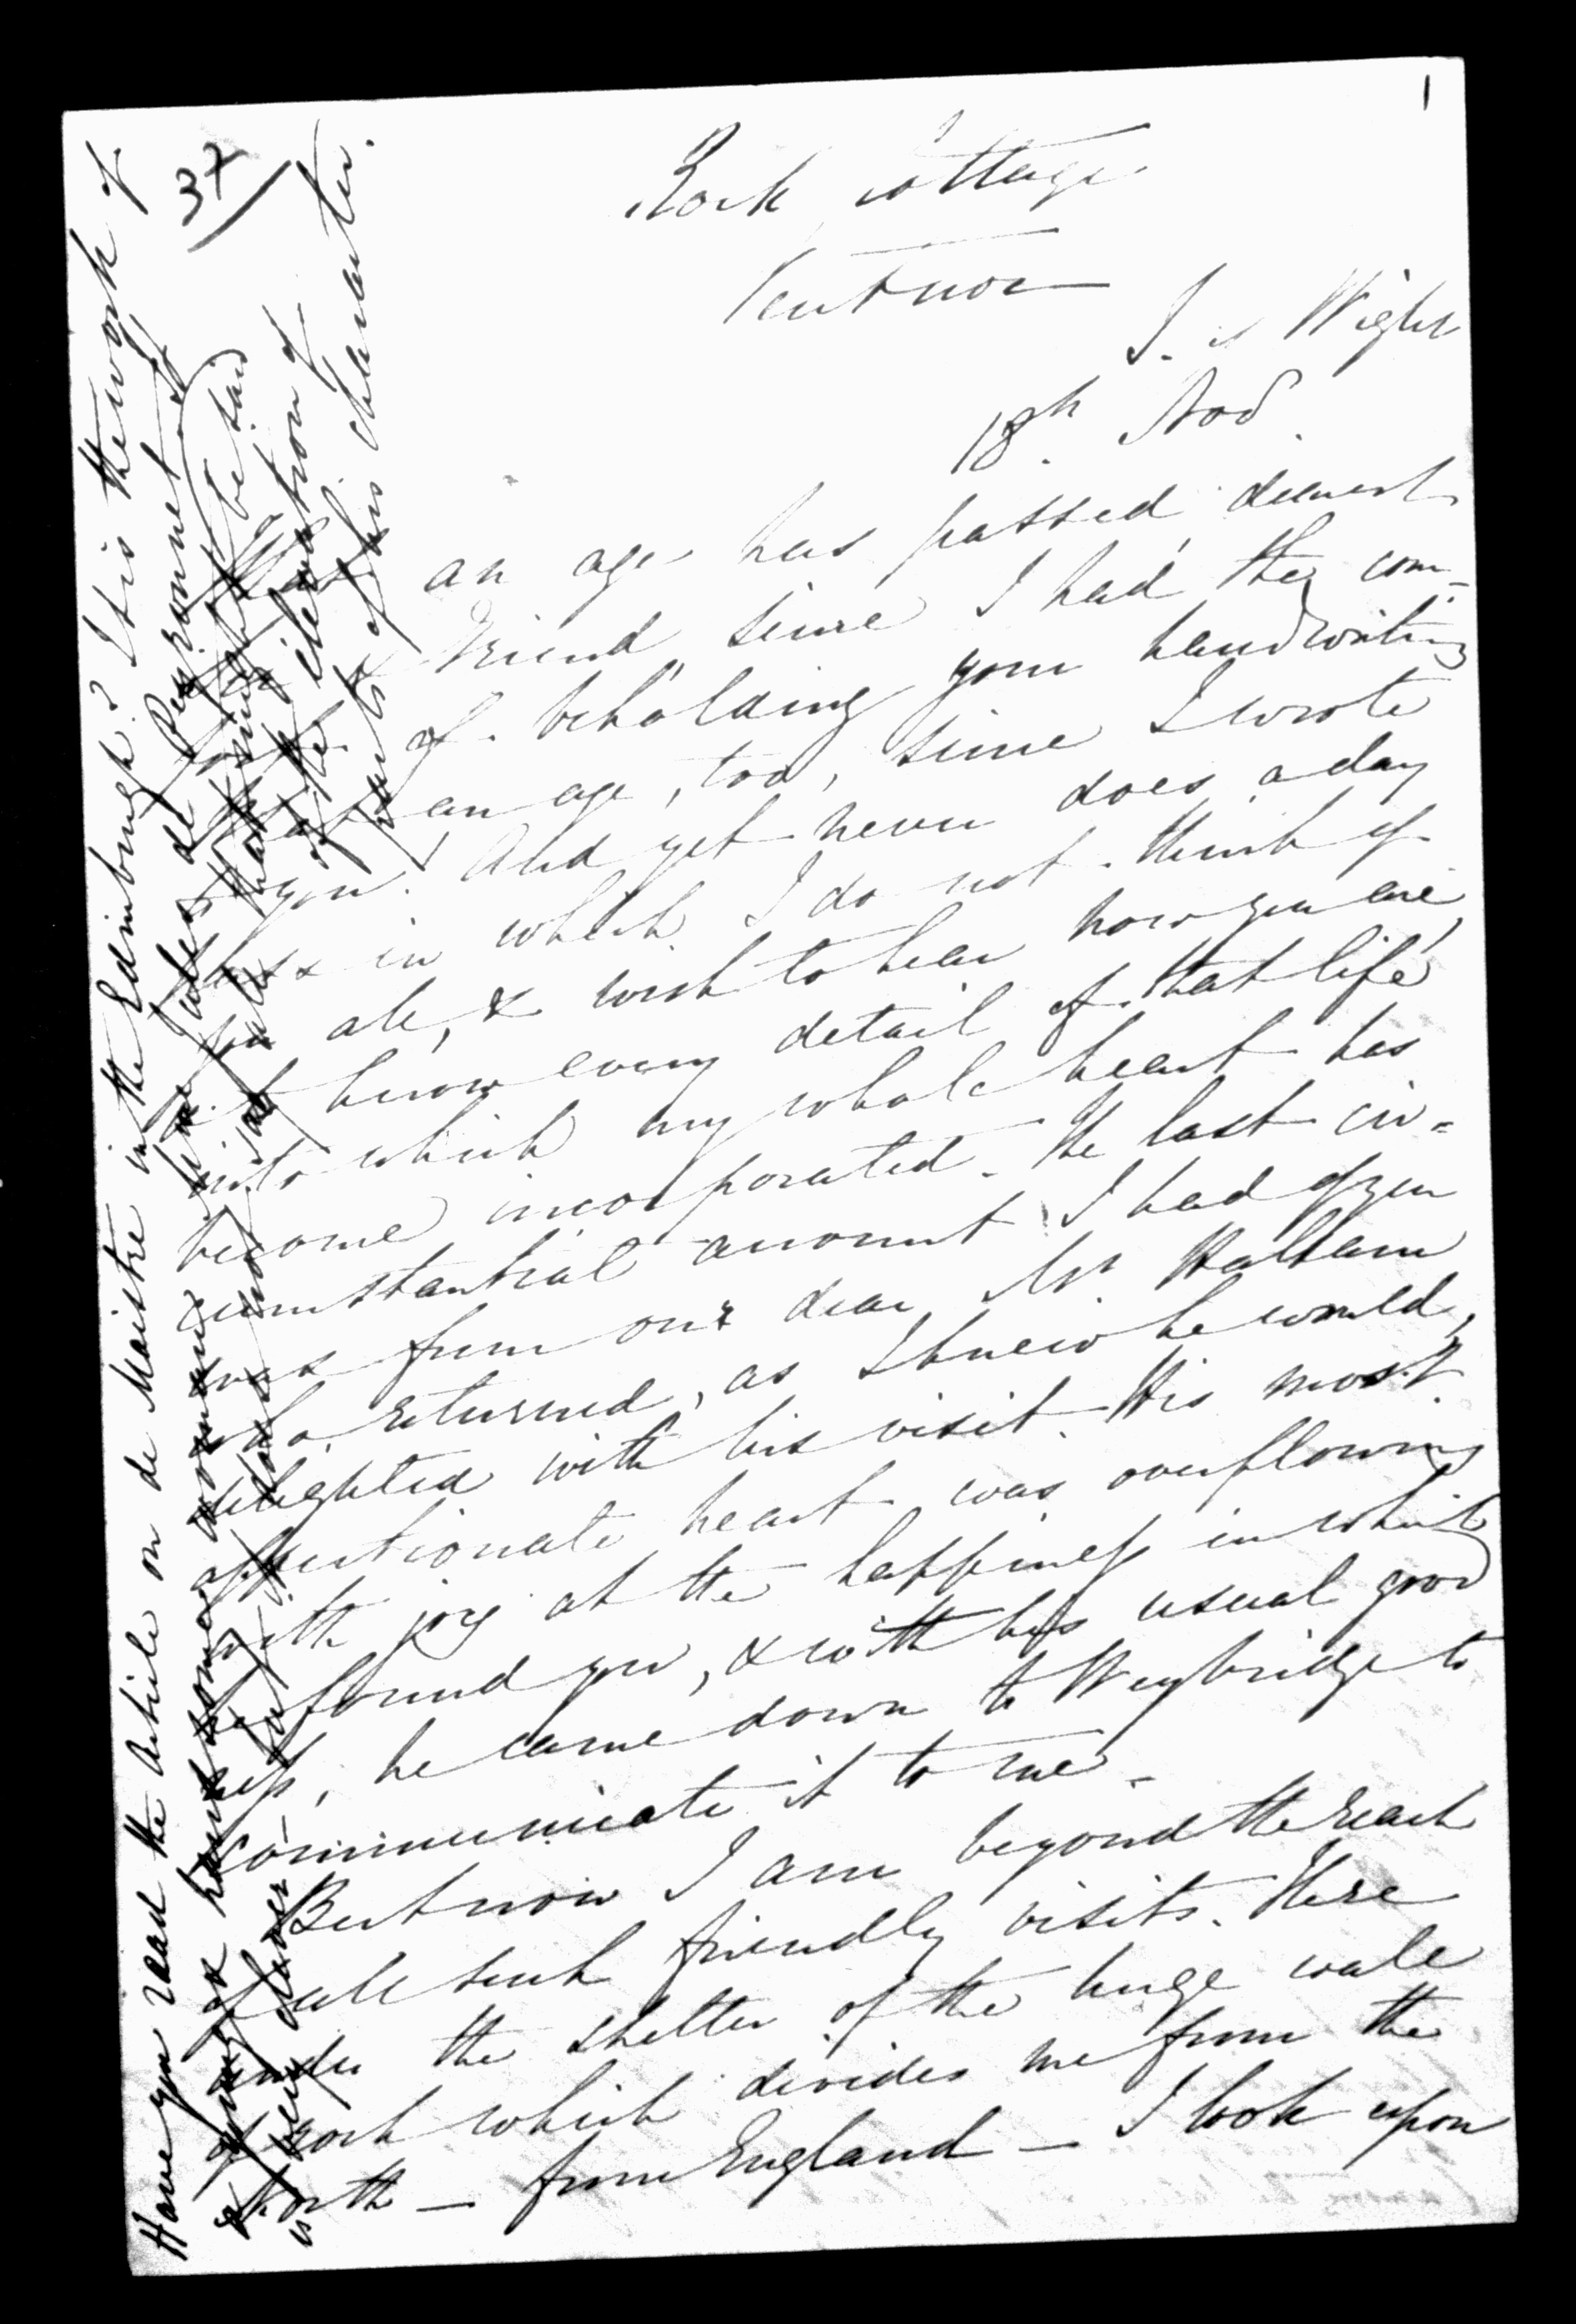 1
37
Rock Cottage
Ventnor
I. of Wight
18th Nov.
What an age has passed, dearest
friend, since I had the com-
fort of beholding your handwriting
& what an age, too, since I wrote
to you! And yet never does a day
pass in which I do not think of
you all, & wish to hear how you are,
& to know every detail of that life
into which my whole heart has
become incorporated. The last cir-
cumstantial account I had of you
was from our dear Mr Hallam
who returned, as I knew he would,
delighted with his visit. His most
affectionate heart was overflowing
with joy at the happiness in which
he found you, & with his usual good
ness, he came down to Weybridge to
communicate it to me.
But now I am beyond the reach
of all such friendly visits. Here
under the shelter of the huge wall
of rock which divides me from the
North — from England — I look upon
Have you read the Article on de Maistre in the Edinburgh? It is the work of
a young & handsome woman
is very clever
of the elevation of
parts of his character.